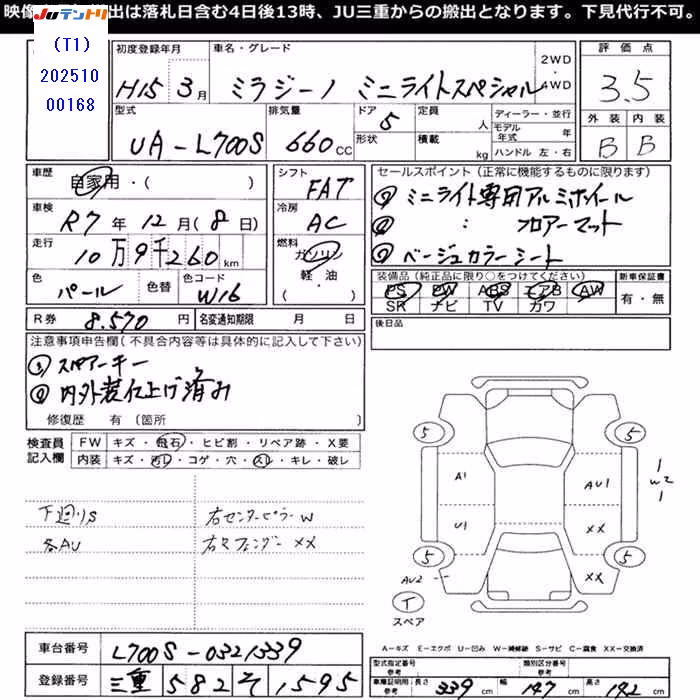 映像 出は落札日含む4日後13時、JU三重からの搬出となります。下見代行不可。
Juテントリ
(T1)
202510
00168
初度登録年月
H15 3月
車名・グレード
ミラジーノ ミニライトスペシャル
2WD
4WD
評価点
3.5
外装 内装
B B
型式
UA-L700S
排気量
660 CC
ドア
5
形状
定員
人
積載
kg
ディーラー・並行
モデル年式 年
ハンドル 左・右
車歴
自家用・( )
シフト
FAT
セールスポイント(正常に機能するものに限ります)
① ミニライト専用アルミホイール
② : フロアーマット
③ ベージュカラーシート
車検
R7年12月(8日)
冷房
AC
走行
10万9千260km
燃料
ガソリン
軽・油
( )
色
パール
色替
色コード
W16
装備品(純正品に限り○をつけてください)
PS PW ABS エアB AW
SR ナビ TV カワ
新車保証書
有・無
R券 8.570円
名変通知期限 月 日
後日品
注意事項申告欄(不具合内容等は具体的に記入して下さい)
① スペアーキー
② 内外装仕上げ済み
修復歴 有(箇所 )
検査員
記入欄
FW キズ・飛石・ヒビ割・リペア跡・X要
内装 キズ・汚レ・コゲ・穴・スレ・キレ・破レ
下廻りS
各AU
右センターピラーW
右Rフェンダー XX
5
5
A1
AU1
1
W2
1
U1
XX
5
5
AU2
XX
T
スペア
A―キズ E―エクボ U―凹み W―補修跡 S―サビ C―腐食 XX―交換済
車台番号 L700S-0321339
登録番号 三重 582 そ 1595
型式指定番号
類別区分番号
車庫証明用(参考) 長さ 339 cm
幅 147 cm
高さ 142 cm